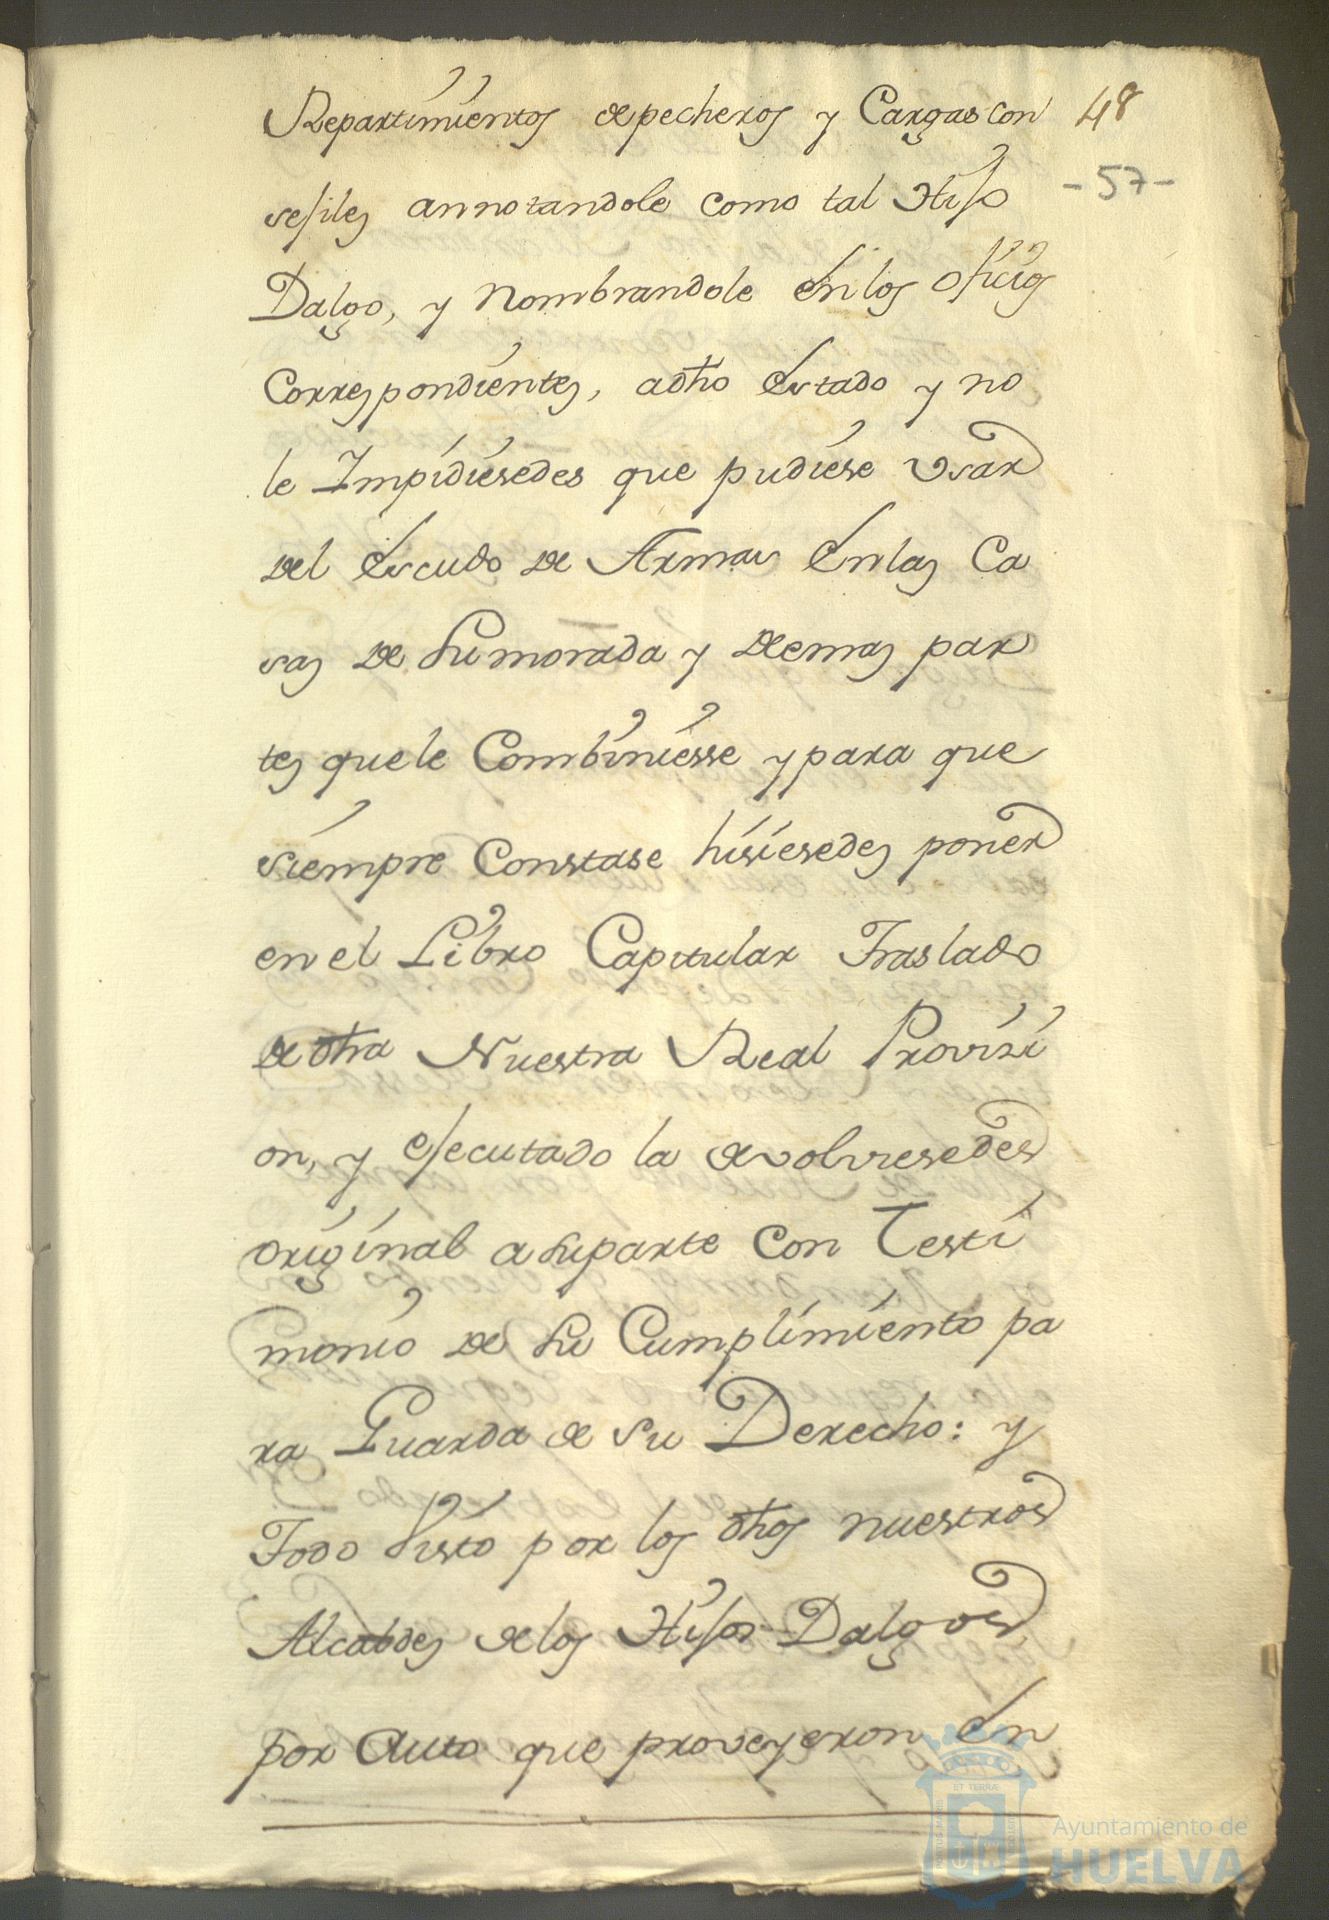 Repartimientos de pecheros y Cargas con 48
sejiles annotandole como tal Hijo -57-
Dalgo, y Nombrandole en los oficios
Correspondientes, adho Estado y no
le Impidiesedes que pudiese Usar
del Escudo de Armas en las Ca
sas de Su morada y demas par
tes que le Combiniesse y para que
siempre Constase hisiesedes poner
en el Libro Capitular Traslado
de dha Nuestra Real Provizi
on, y ejecutado la devolviesedes
original a su parte con Testi
monio de Su Cumplimiento pa
ra Guarda de su Derecho: y
Todo Visto por los dhos nuestros
Alcaldes de los Hijos-Dalgos
por Auto que proveyeron en
ET TERRÆ
Ayuntamiento de
HUELVA